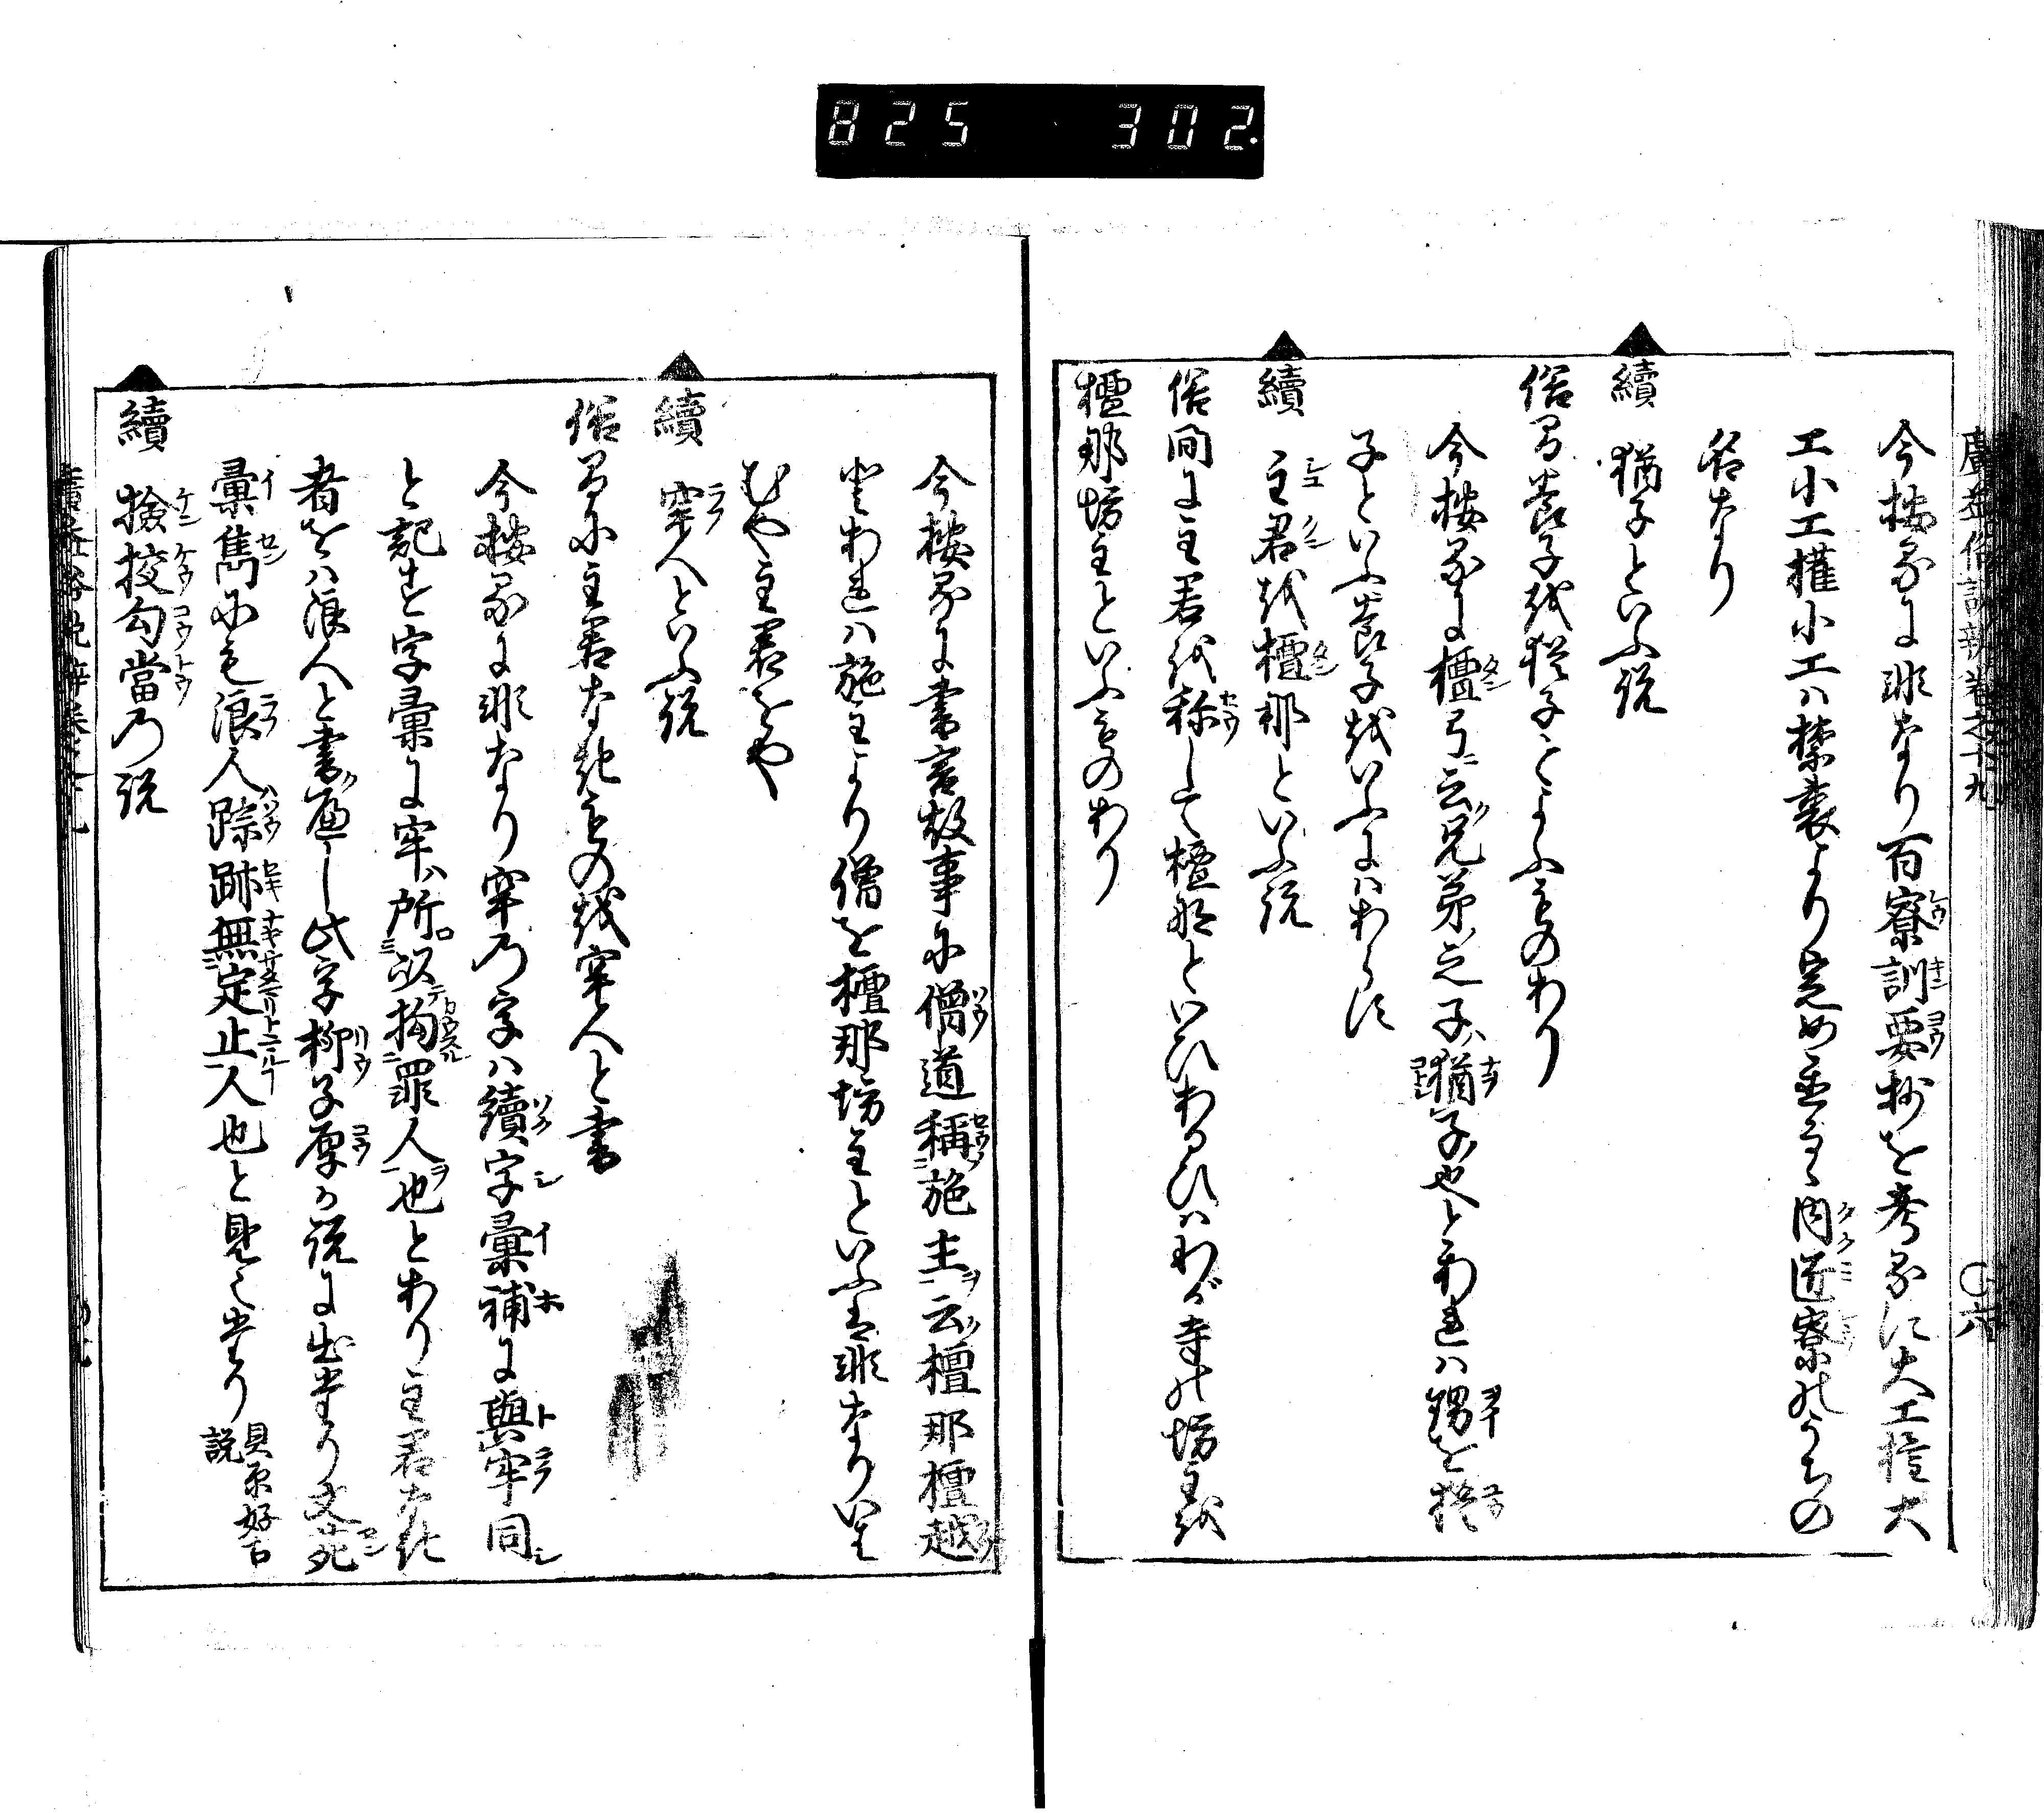 825 302
廣益俗説辨巻之十九
今按るに非なり百寮訓要抄を考るに大工権大
工小工権小工ハ禁裏より定め
内匠寮のうちの
名なり
續 猶子といふ説
俗に養子を猶子といふものあり
今按るに檀弓云兄弟之子猶子也とあれハ甥を猶
子といふ養子をいふにハあらす
續 主君を檀那といふ説
俗間に主君を称して檀那といひあるひハわが寺の坊主を
檀那坊主といふものあり
今按るに書言故事に僧道稱施主云檀那檀越
とあれハ施主より僧を檀那坊主といふは非なりいは
むや主君をや
續 牢人といふ説
俗に主君なきものを牢人と書
今按るに非なり牢の字ハ續字彙補に與牢同
と記す字彙に牢ハ所以拘罪人也とあり主君なき
者をハ浪人と書へし此字柳子厚か説に出たり文苑
彙雋にも浪人踪跡無定止人也と見えたり 貝原好古説
續 撿挍勾當の説